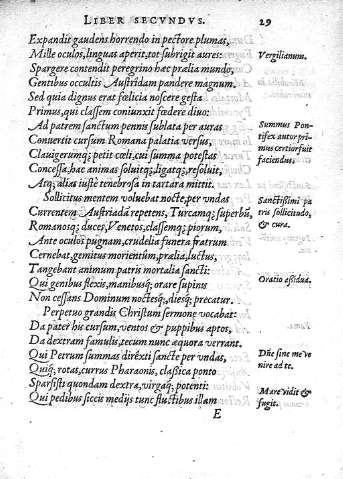 LIBER SECVNDVS. 29
Expandit gaudens horrendo in pectore plumas,
Mille oculos, linguas aperit, tot subrigit aures: Vergilianum.
Spargere contendit peregrino hæc prælia mundo,
Gentibus occultis Austriдam pandere magnum.
Sed quia dignus erat fœlicia noscere gesta
Primus, qui classem coniunxit fœdere diuo:
Ad patrem sanctum pennis sublata per auras Summus Pon-
Conuertit cursum Romana palatia versus, tifex autor pri-
Clauigerumq; petit cœli, cui summa potestas mus certior fuit
Concessa, hac animas soluitq; ligatq; resoluit, faciendus.
Atq; alias iustè tenebrosa in tartara mittit.
Sollicitus mentem voluebat nocte, per vndas Sanctissimi pa
Currentem Austriadā repetens, Turcamq; superbū, tris sollicitudo,
Romanosq; duces, Venetos, classemq; piorum, & cura.
Ante oculos pugnam, crudelia funera fratrum
Cernebat, gemitus morientûm, prælia, luctus,
Tangebant animum patris mortalia sancti:
Qui genibus flexis, manibusq; orare supinis Oratio assidua.
Non cessans Dominum noctesq; diesq; precatur.
Perpetuo grandis Christum sermone vocabat:
Da pater his cursum, ventos & puppibus aptos,
Da dextram famulis, tecum nunc æquora verrant.
Qui Petrum summas direxti sancte per vndas, Dñe sine me ve
Quiq; rotas, currus Pharaonis, classica ponto nire ad te.
Sparsisti quondam dextra, virgaq; potenti: Mare vidit &
Qui pedibus siccis medijs tunc fluctibus illam fugit.
E